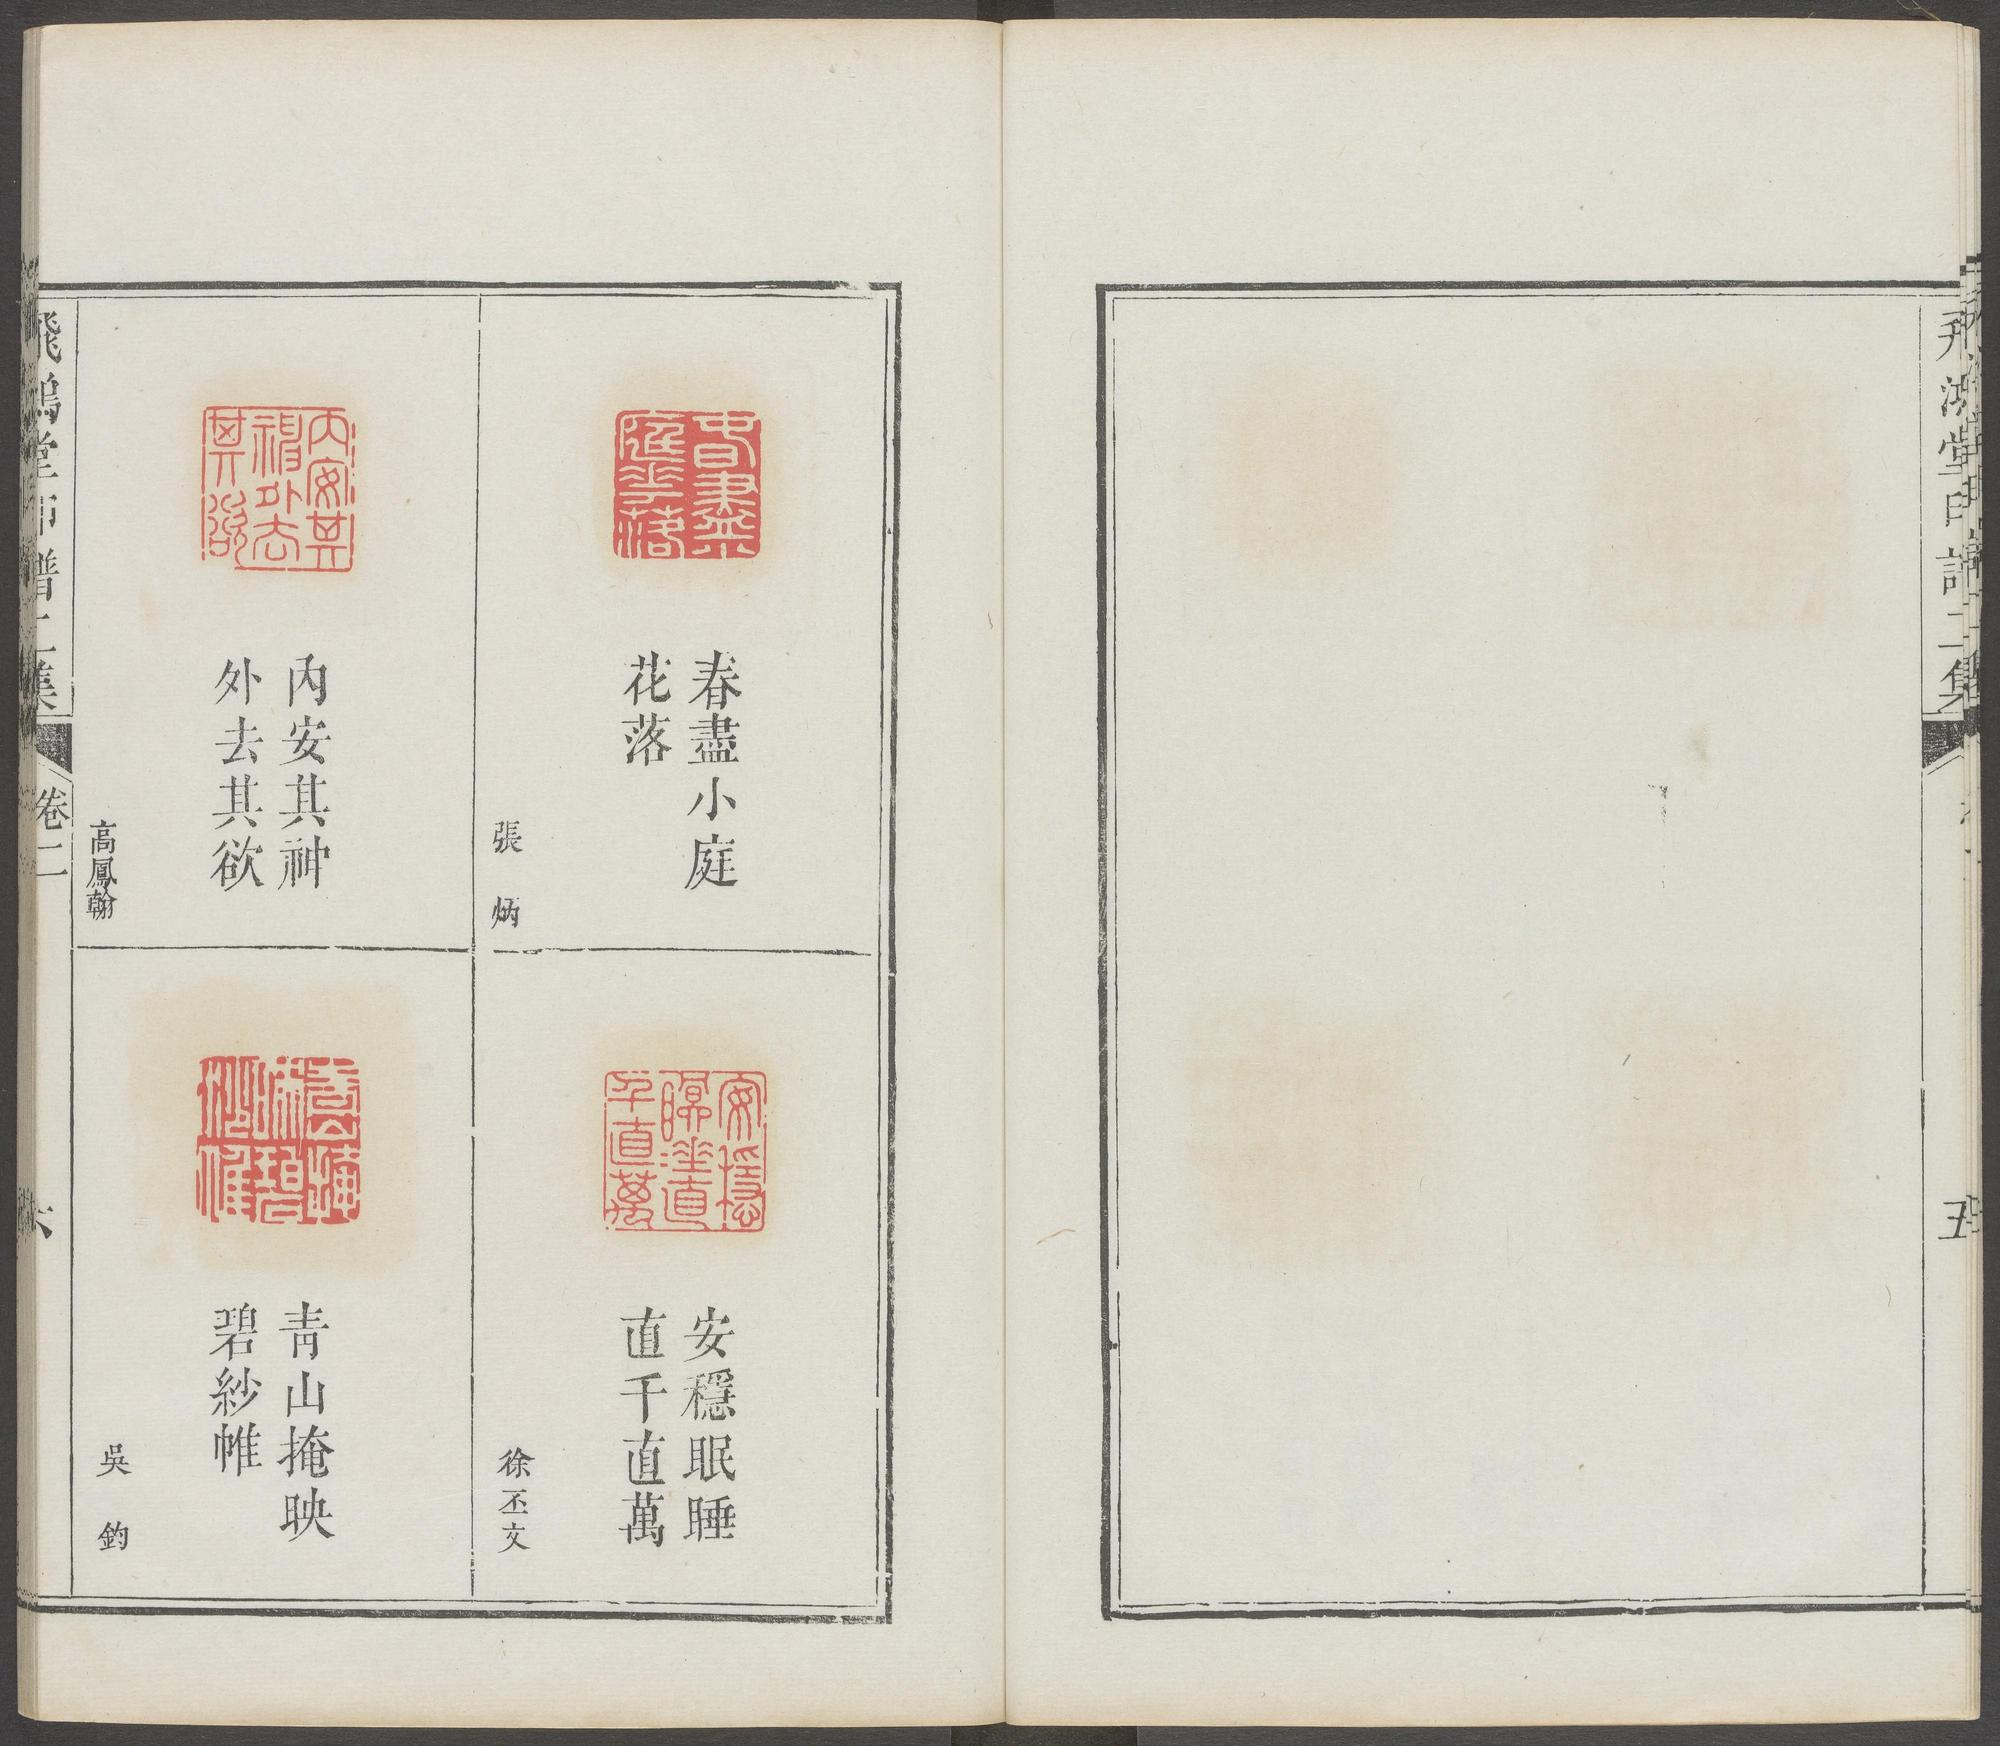 飛鴻堂印譜二集
五
春盡小庭
花落
張炳
安穩眠睡
直千直萬
徐丕文
內安其神
外去其欲
高鳳翰
青山掩映
碧紗帷
吳鈞
飛鴻堂印譜二集
卷二
六